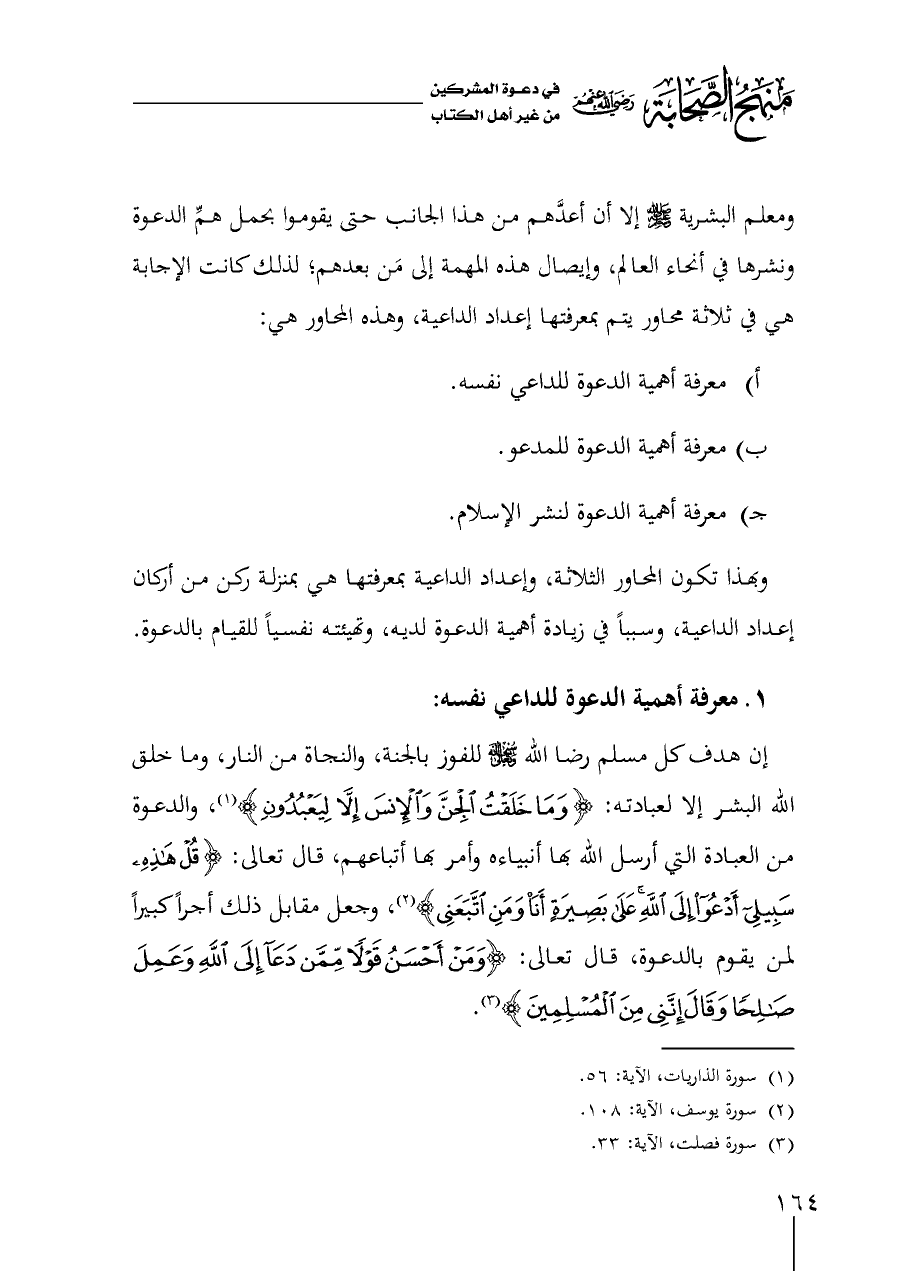 منهج الصحابة رضي الله عنهم في دعوة المشركين
من غير أهل الكتاب
ومعلم البشرية ﷺ إلا أن أعدَّهم من هذا الجانب حتى يقوموا بحمل همِّ الدعوة
ونشرها في أنحاء العالم، وإيصال هذه المهمة إلى مَن بعدهم؛ لذلك كانت الإجابة
هي في ثلاثة محاور يتم بمعرفتها إعداد الداعية، وهذه المحاور هي:
أ) معرفة أهمية الدعوة للداعي نفسه.
ب) معرفة أهمية الدعوة للمدعو.
جـ) معرفة أهمية الدعوة لنشر الإسلام.
وبهذا تكون المحاور الثلاثة، وإعداد الداعية بمعرفتها هي بمنزلة ركن من أركان
إعداد الداعية، وسبباً في زيادة أهمية الدعوة لديه، وتهيئته نفسياً للقيام بالدعوة.
١. معرفة أهمية الدعوة للداعي نفسه:
إن هدف كل مسلم رضا الله ﷻ للفوز بالجنة، والنجاة من النار، وما خلق
الله البشر إلا لعبادته: ﴿وَمَا خَلَقْتُ ٱلْجِنَّ وَٱلْإِنسَ إِلَّا لِيَعْبُدُونِ﴾(١)، والدعوة
من العبادة التي أرسل الله بها أنبياءه وأمر بها أتباعهم، قال تعالى: ﴿قُلْ هَٰذِهِۦ
سَبِيلِىٓ أَدْعُوٓا۟ إِلَى ٱللَّهِ ۚ عَلَىٰ بَصِيرَةٍ أَنَا۠ وَمَنِ ٱتَّبَعَنِى﴾(٢)، وجعل مقابل ذلك أجراً كبيراً
لمن يقوم بالدعوة، قال تعالى: ﴿وَمَنْ أَحْسَنُ قَوْلًا مِّمَّن دَعَآ إِلَى ٱللَّهِ وَعَمِلَ
صَٰلِحًا وَقَالَ إِنَّنِى مِنَ ٱلْمُسْلِمِينَ﴾(٣).
(١) سورة الذاريات، الآية: ٥٦.
(٢) سورة يوسف، الآية: ١٠٨.
(٣) سورة فصلت، الآية: ٣٣.
١٦٤